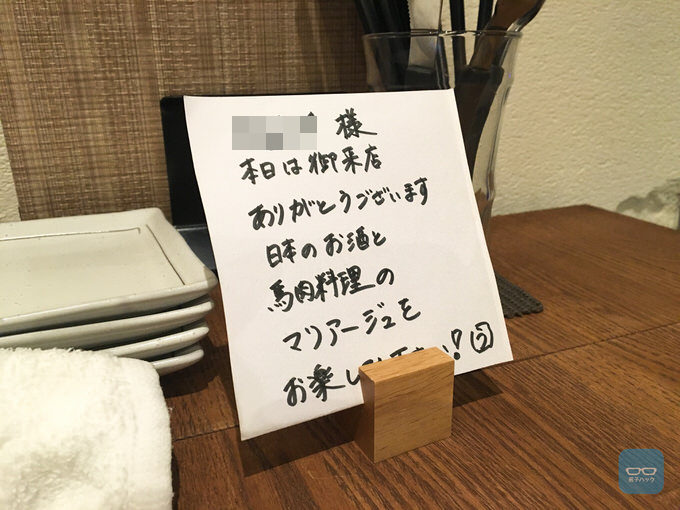 様
本日は御来店
ありがとうございます
日本のお酒と
馬肉料理の
マリアージュを
お楽し